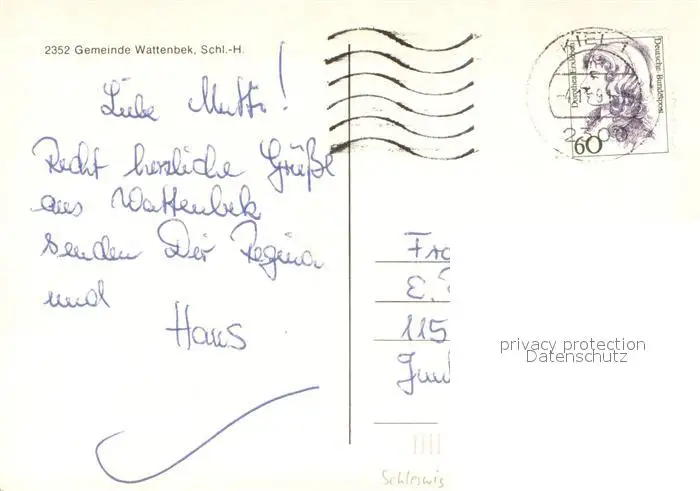 2352 Gemeinde Wattenbek, Schl.-H.
Liebe Mutti!
Recht herzliche Grüße
aus Wattenbek
senden Dir Regina
und
Hans
KIEL 1
2300
Deutsche Bundespost
60
E.
115
privacy protection
Datenschutz
Schleswig